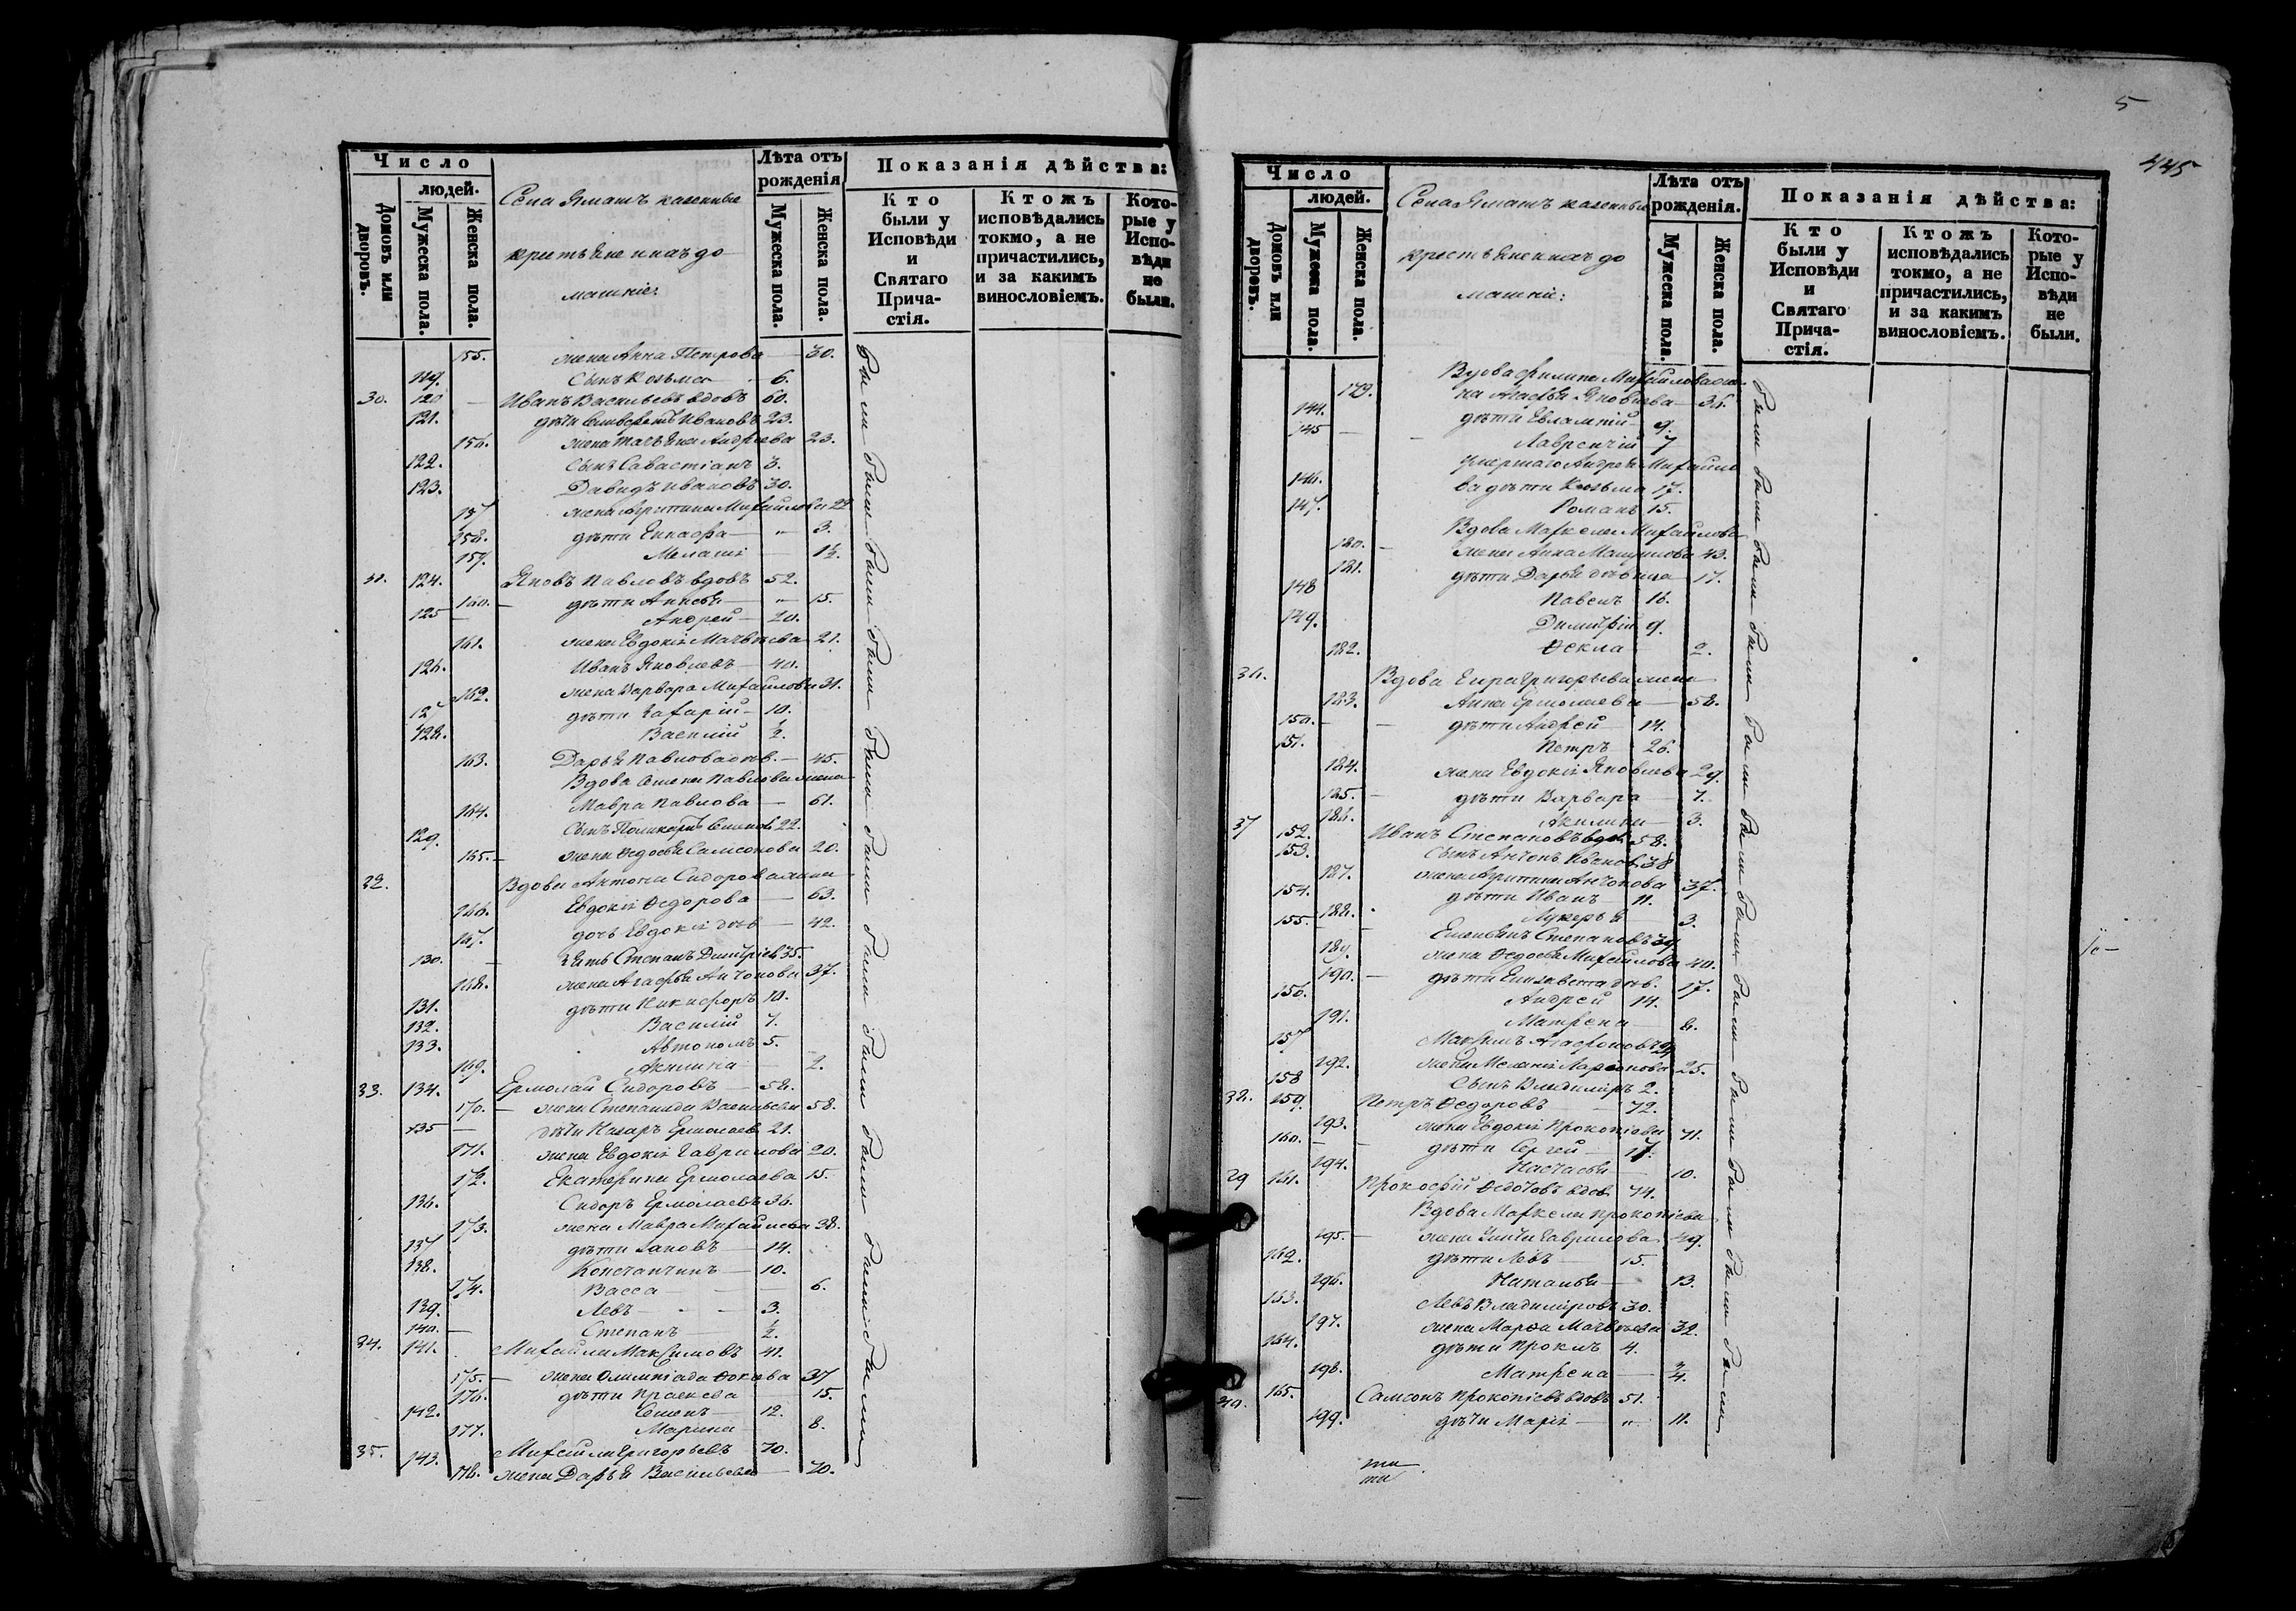 Число
людей.
Домовъ или дворовъ.
Мужеска пола.
Женска пола.
Села Ямашъ казенные
крестьяне и ихъ до
машніе:
Лѣта отъ рожденія
Мужеска пола.
Женска пола.
Показанія дѣйства:
Кто были у Исповѣди и Святаго Причастія.
Ктожъ исповѣдались токмо, а не причастились, и за какимъ винословіемъ.
Которые у Исповѣди не были.
155. жена Анна Петрова — 30.
119. Сынъ Козьма 6.
30. 120 — Иванъ Васильевъ вдовъ 60.
121. дѣти Ивановъ 23.
156. жена Татьяна Андреева 23.
122. сынъ Савастіанъ 3.
123. Давидъ Ивановъ 30.
157 жена Агрипина Михайлова 22
158. дѣти — " — 3.
159. Меланія — 1½.
31. 124. Яковъ Павловъ вдовъ 52.
160. — дѣти Анисья — " — 15.
125 — Андрей — 20.
161. жена Евдокія Матвѣева 21.
126. Иванъ Яковлевъ — 40.
162. жена Варвара Михайлова 31.
127 дѣти Захарій — 10.
128. Василій ½.
163. Дарья Павлова дѣв. — 45.
Вдова Семена Павлова жена
164. Мавра Павлова — 61.
129. сынъ Поликарпъ Семенов 22.
165. — жена Федосья Самсонова 20.
32. Вдова Антона Сидорова жена
166. Евдокія Федорова — 63.
167. дочь Евдокія дѣв — 42.
130. зять Степанъ Димитріев 35.
168. жена Агафья Антонова 37.
131. дѣти Никифоръ 10.
132. Василій 7.
133. Автономъ 5.
169. Акилина — 2.
33. 134. Ермолай Сидоровъ — 58.
170. — жена Степанида Васильева 58.
135 — дѣти Назаръ Ермолаев 21.
171. жена Евдокія Гаврилова 20.
172. Екатерина Ермолаева 15.
136. Сидоръ Ермолаевъ 36.
173. жена Мавра Михайлова 38.
137 дѣти Іаковъ — 14.
138. Константинъ — 10.
174. Васса — 6.
139. Левъ — 3.
140. — Степанъ — ½.
34. 141. Михайла Максимовъ 41.
175. — жена Олимпіада Фокаева 37
176. дѣти Праскева — 15.
142. Семенъ — 12.
177. Марина — 8.
35. 143. Михайла Григорьевъ 70.
178. жена Дарья Васильева — 70.
были были были были были были были были были были были были
5
445
Число
людей.
Домовъ или дворовъ.
Мужеска пола.
Женска пола.
Села Ямашъ казенные
крестьяне и ихъ до
машніе:
Лѣта отъ рожденія.
Мужеска пола.
Женска пола.
Показанія дѣйства:
Кто были у Исповѣди и Святаго Причастія.
Ктожъ исповѣдались токмо, а не причастились, и за какимъ винословіемъ.
Которые у Исповѣди не были.
Вдова Филипа Михайлова же
179. на Агафья Яковлева — 36.
144. дѣти Евлампій — 9.
145 — Лаврентій 7
умершаго Андрея Михайло
146. ва дѣти Козьма 17.
147. Романъ 15.
Вдова Маркела Михайлова
180. — жена Анна Мануилова 43.
181. дѣти Дарья дѣвица — 17.
148 Павелъ 16.
149. Димитрій 9.
182. Фекла — 2.
36. Вдова Григорьева жена
183. Анна Ермолаева — 58.
150. — дѣти Андрей — 14.
151. Петръ 26.
184. жена Евдокія Яковлева 29.
185. — дѣти Варвара — 7.
186. Акилина — 3.
37 152. Иванъ Степановъ вдов 58.
153. Сынъ Антонъ Иванов 38
187. жена Агрипина Антонова 37.
154. дѣти Иванъ — 11.
188. Лукерья — 3.
155 — Емельянъ Степановъ 39.
189. жена Федосья Михайлова 40.
190. — дѣти Елизавета дѣв. 17.
156. Андрей 14.
191. Матрена — 6.
157 Максимъ Агафоновъ
192. жена Меланія Ларіонова 25.
158 Сынъ Владиміръ 2.
38. 159. Петръ Федоровъ — 72.
193. жена Евдокія Прокопіева 71.
160. — дѣти Сергей — 17.
194. Настасья — 10.
39 161. Прокофій Федотовъ вдов. 74.
Вдова Маркела Прокопіева
195. — жена Гаврилова 49.
162. дѣти Левъ 15.
196. Наталья — 13.
163. Левъ Владиміровъ 30.
197. жена Марфа Матвѣева 32.
164. дѣти Проклъ 4.
198. Матрена — ¾.
40. 165. Самсонъ Прокопіевъ вдовъ 51.
199. дѣти Марія — " — 11.
были были были были были были были были были были были были